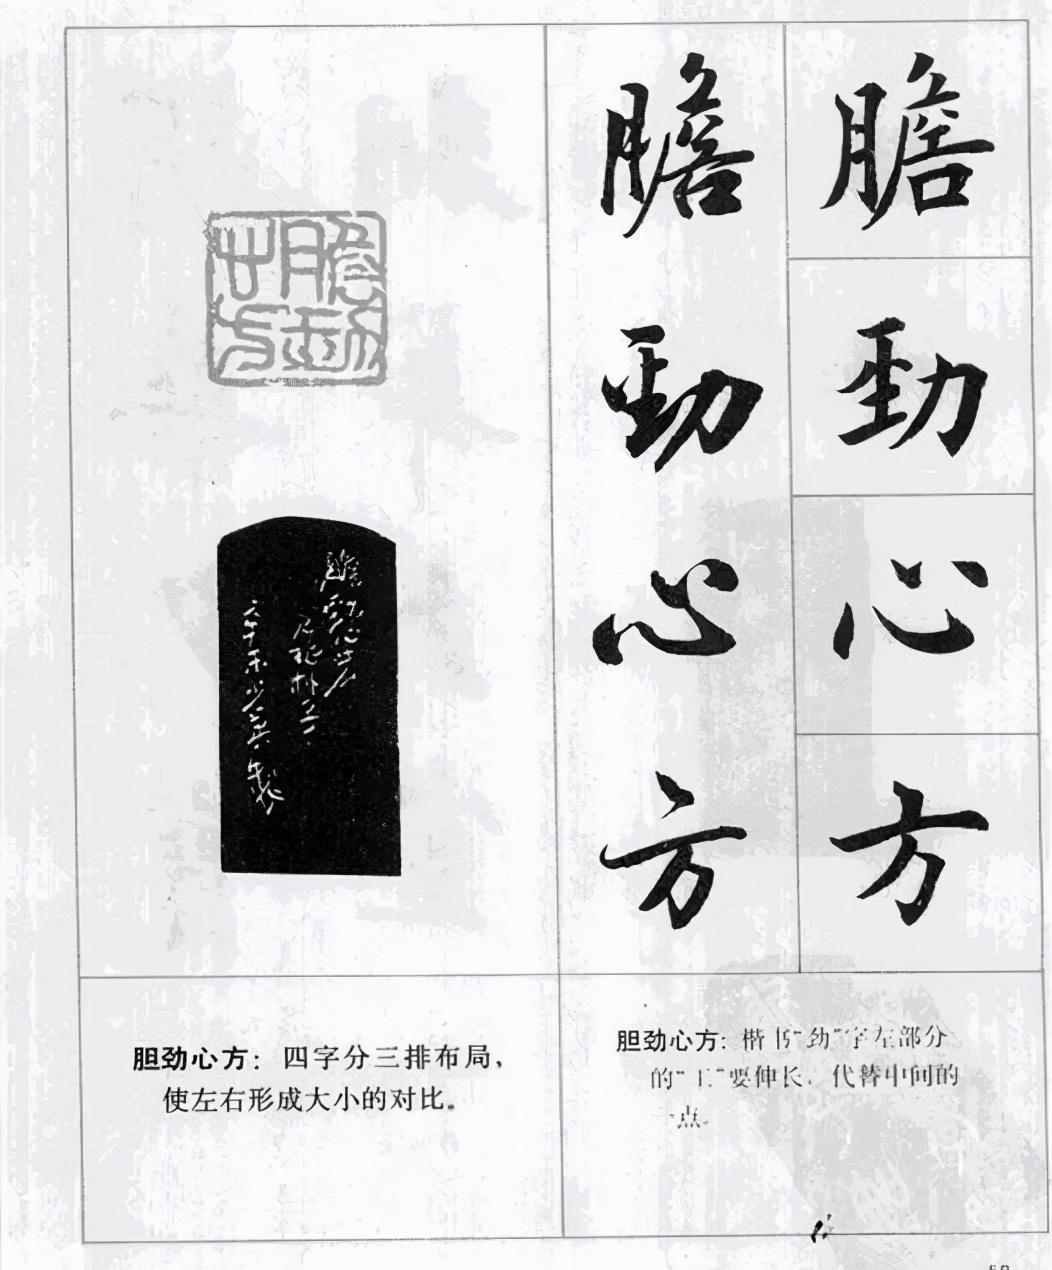 膽
勁
心
方
膽
勁
心
方
膽勁心方
膽勁心方
胆劲心方：四字分三排布局，
使左右形成大小的对比。
胆劲心方：楷书“劲”字左部分
的“工”要伸长，代替中间的
一点。